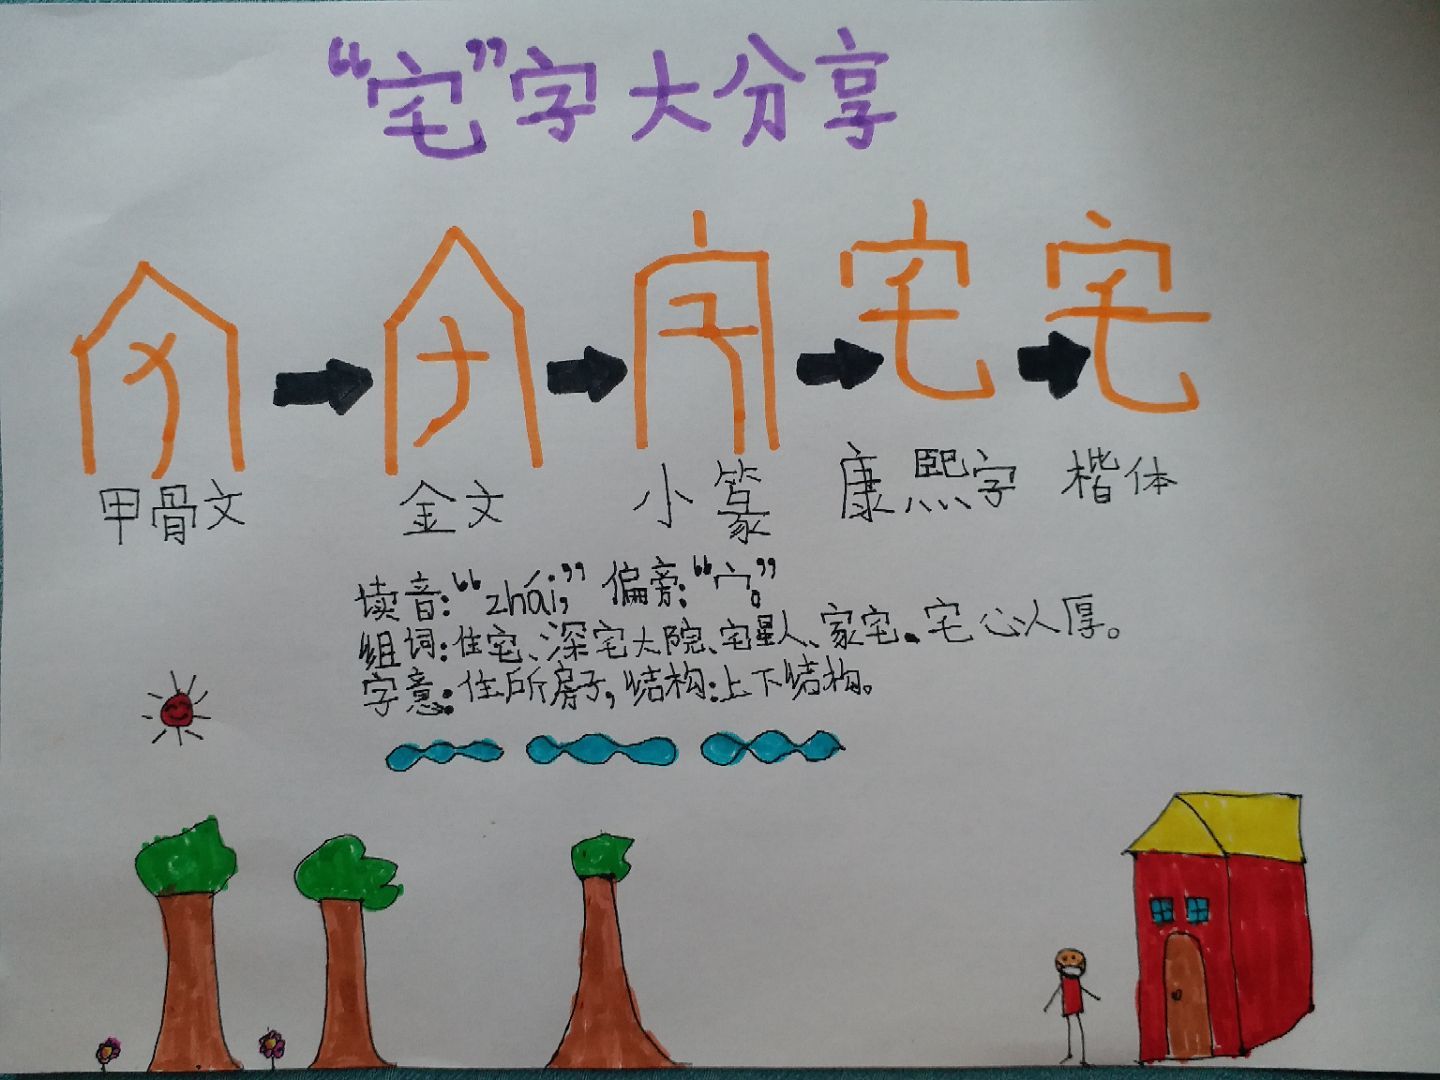 “宅”字大分享
宅 宅 宅 宅 宅
甲骨文 金文 小篆 康熙字 楷体
读音:“zhái;”偏旁:“宀。”
组词:住宅、深宅大院、宅星人、家宅。宅心人厚。
字意:住所房子,结构:上下结构。